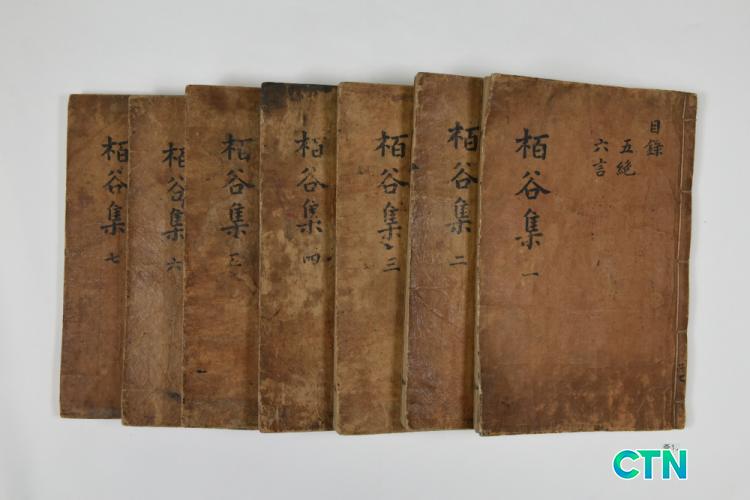 目錄
五絶
六言
栢谷集 一
栢谷集 二
栢谷集 三
栢谷集 四
栢谷集 五
栢谷集 六
栢谷集 七
CTN